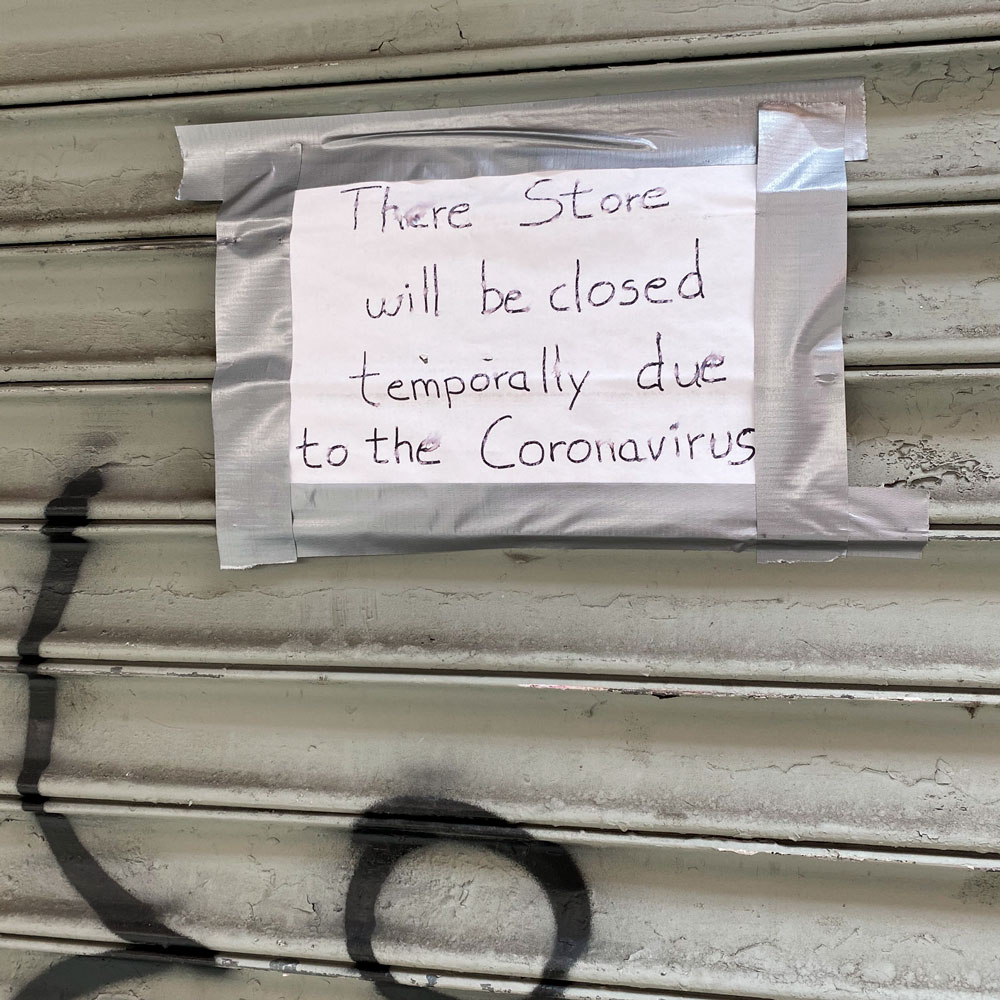 There Store
will be closed
temporally due
to the Coronavirus